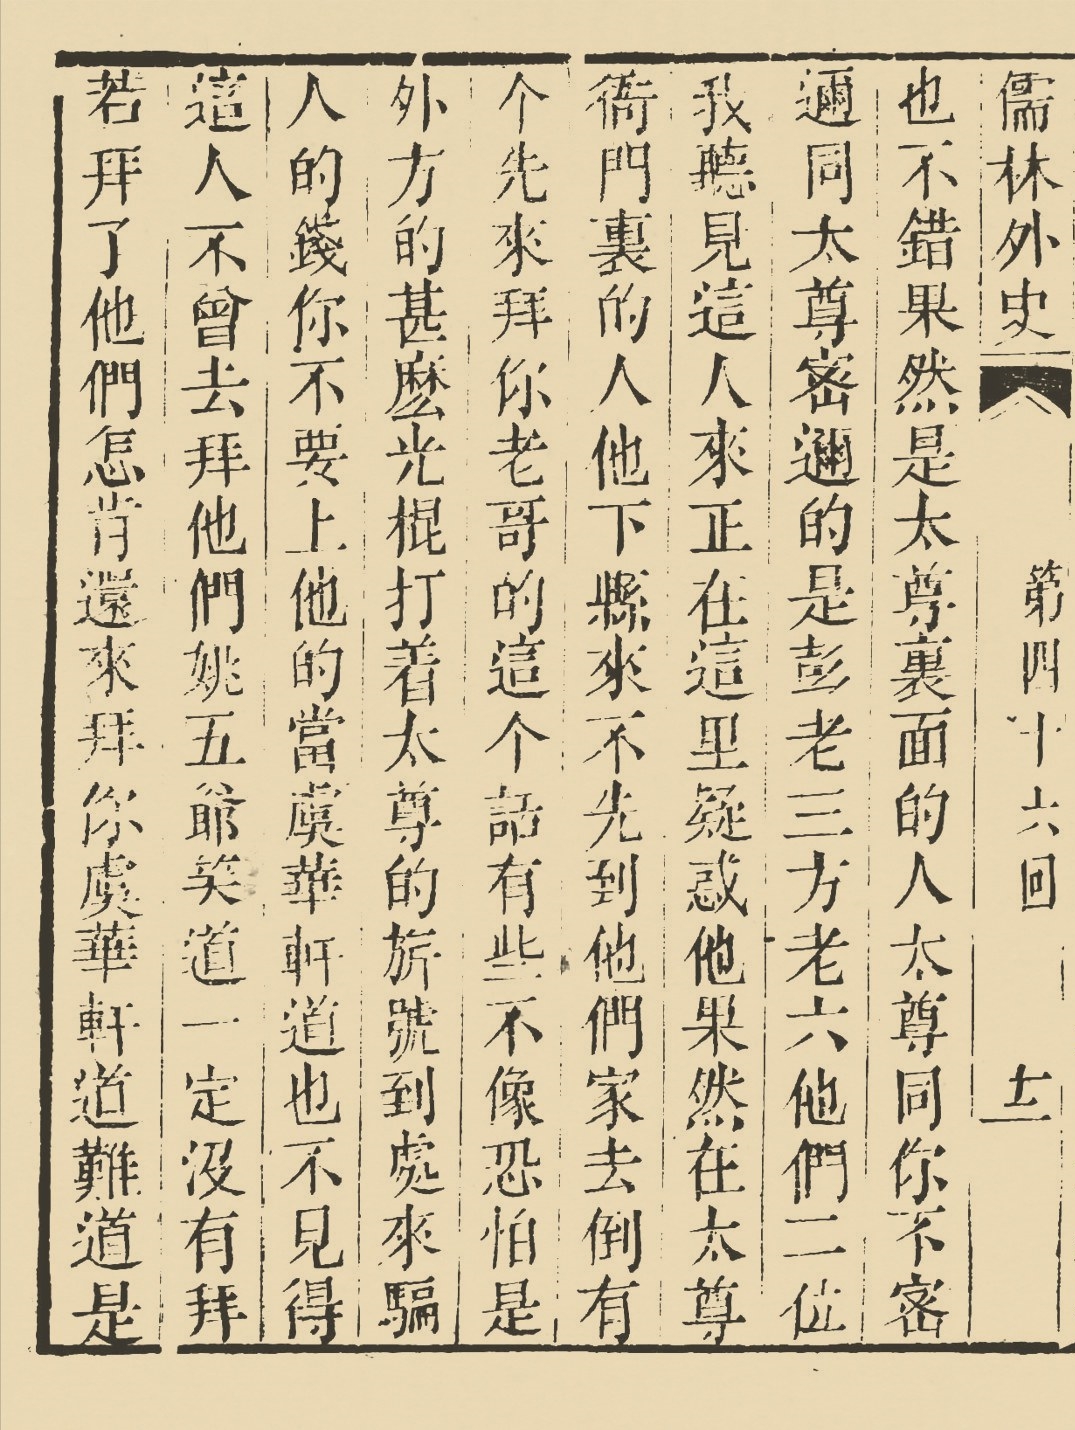 儒林外史
第四十六回
十二
也不錯果然是太尊裏面的人太尊同你不密
邇同太尊密邇的是彭老三方老六他們二位
我聽見這人來正在這里疑惑他果然在太尊
衙門裏的人他下縣來不先到他們家去倒有
个先來拜你老哥的這个話有些不像恐怕是
外方的甚麽光棍打着太尊的旂號到處來騙
人的錢你不要上他的當虞華軒道也不見得
這人不曾去拜他們姚五爺笑道一定沒有拜
若拜了他們怎肯還來拜你虞華軒道難道是